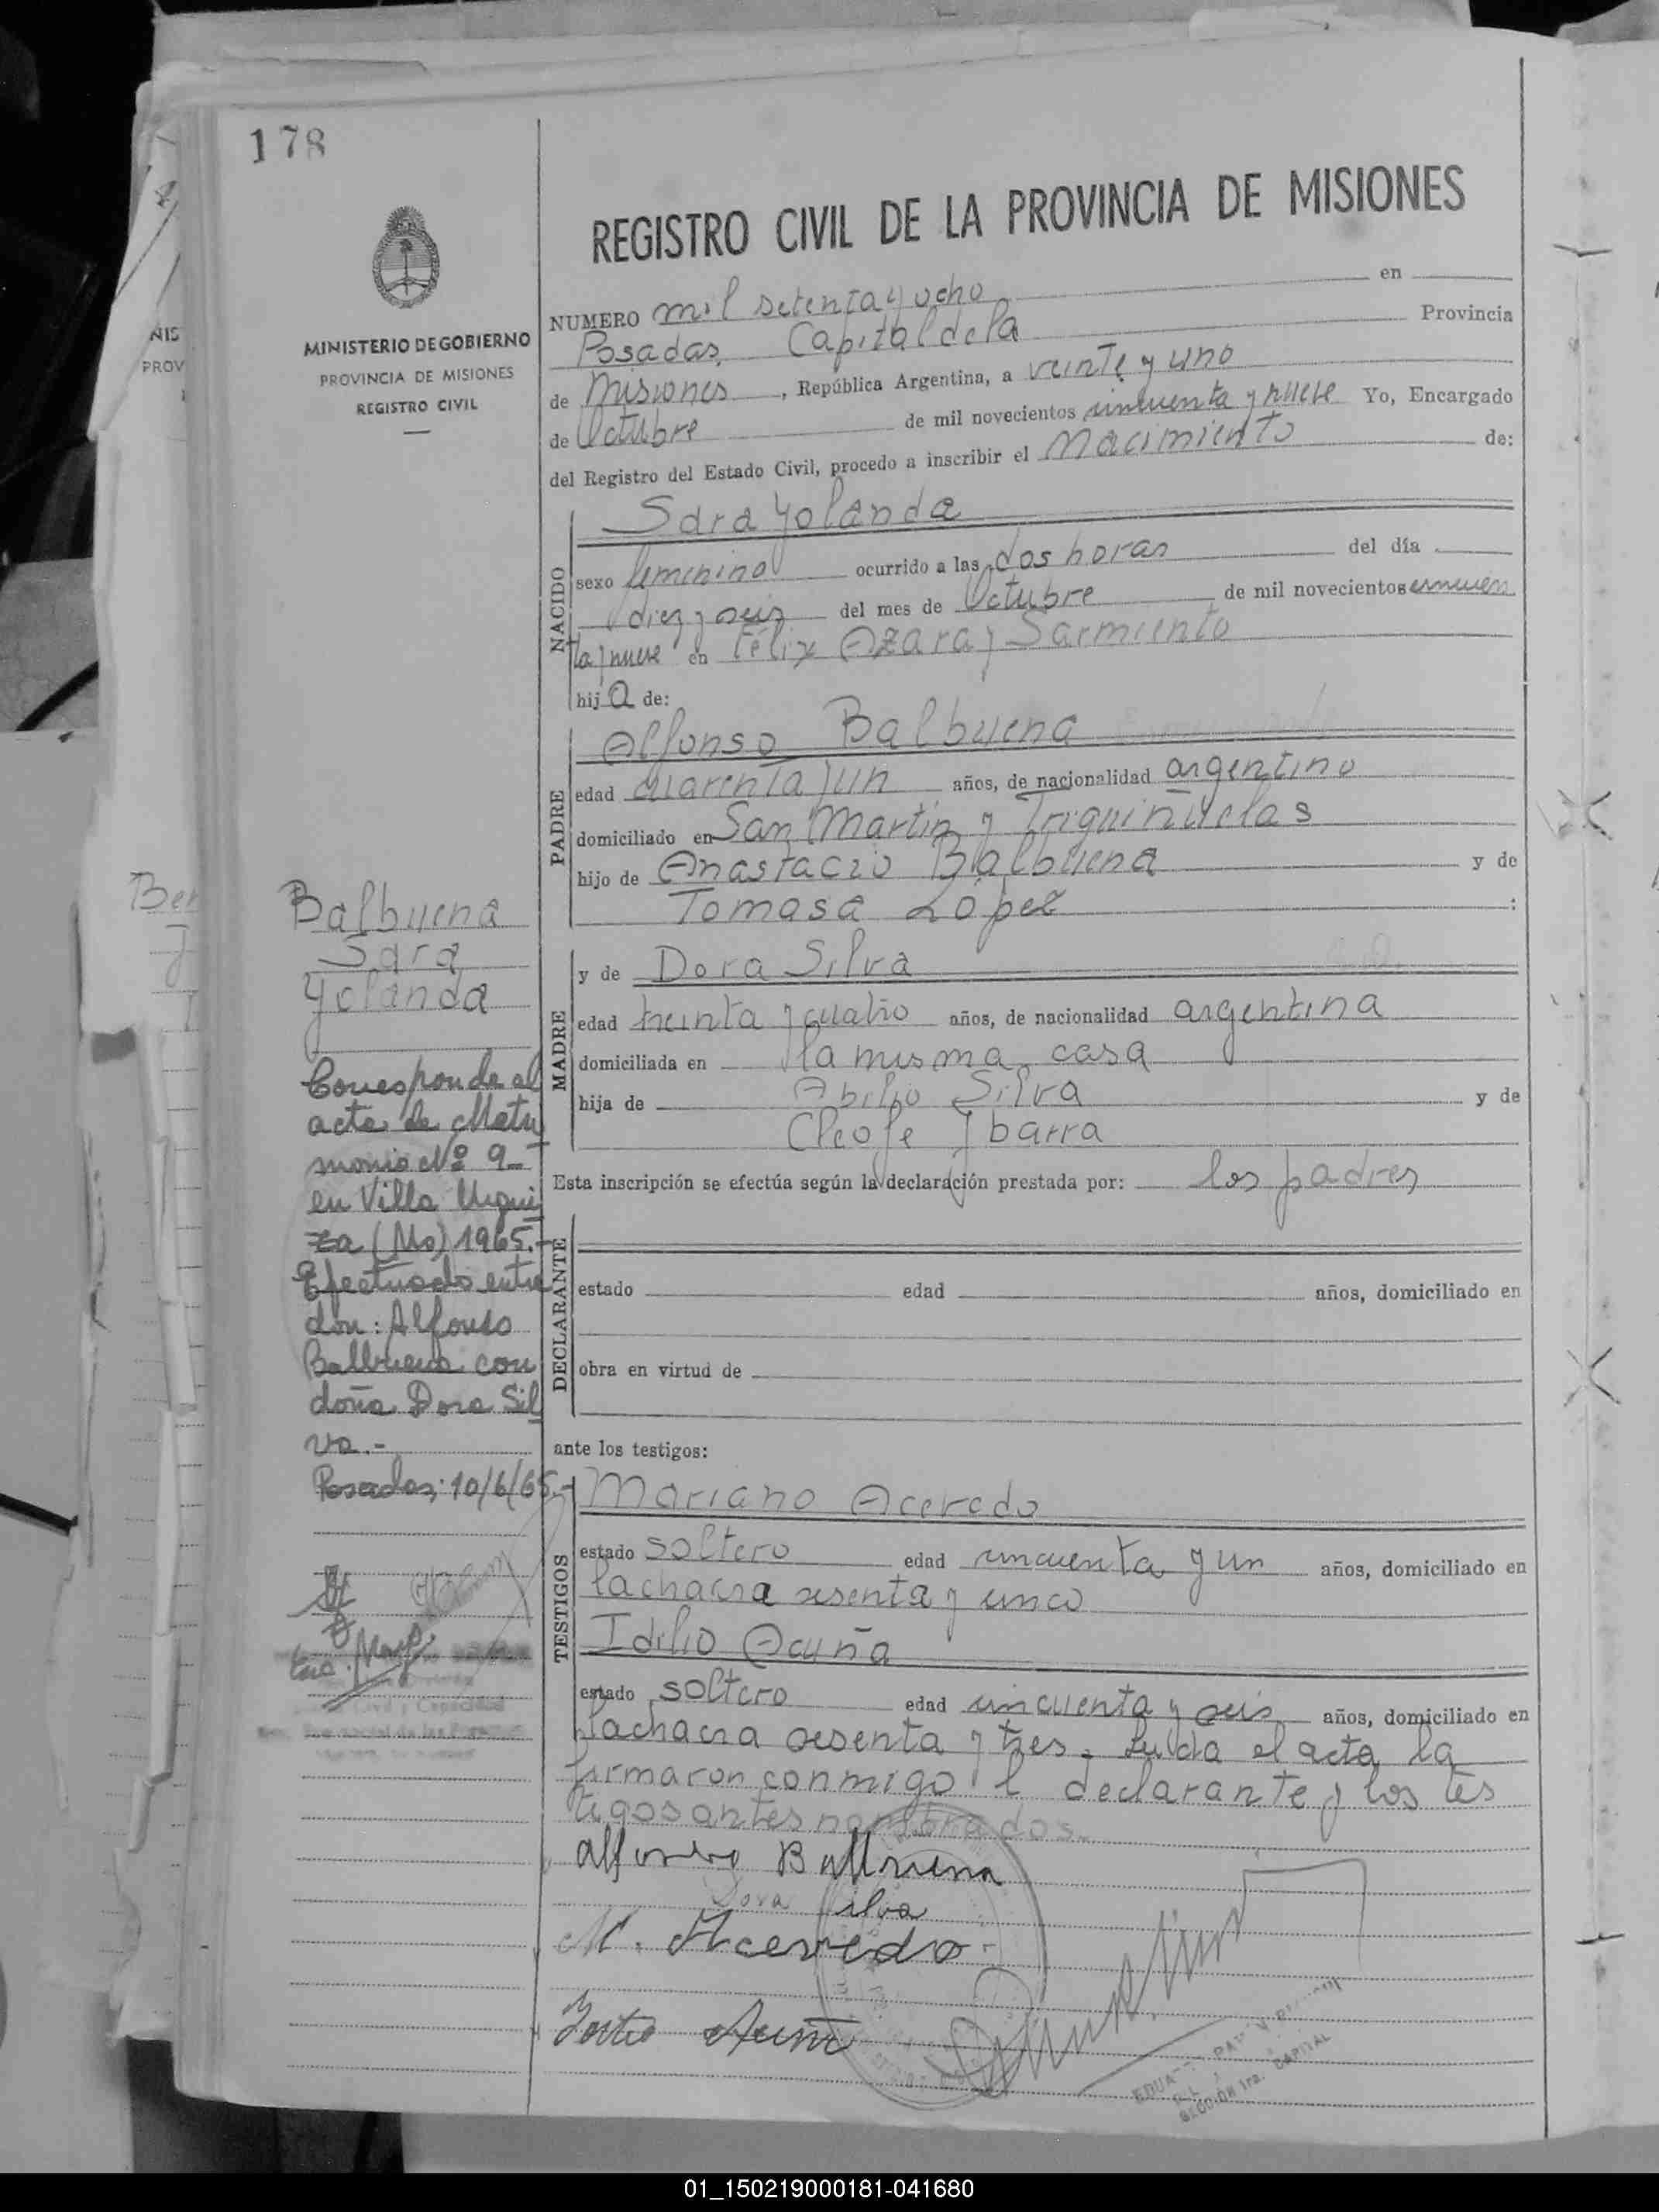 178
REGISTRO CIVIL DE LA PROVINCIA DE MISIONES
MINISTERIO DE GOBIERNO
PROVINCIA DE MISIONES
REGISTRO CIVIL
NIS
PROV
Ber
NUMERO mil setenta y ocho en
Posadas Capital de la Provincia
de Misiones, República Argentina, a veinte y uno
de Octubre de mil novecientos cincuenta y nueve Yo, Encargado
del Registro del Estado Civil, procedo a inscribir el Nacimiento de:
NACIDO
Sara Yolanda
sexo femenino ocurrido a las dos horas del día
diez y seis del mes de Octubre de mil novecientos cincuen
ta y nueve en Félix Azara y Sarmiento
hija de:
PADRE
Alfonso Balbuena
edad cuarenta y un años, de nacionalidad argentino
domiciliado en San Martin y Triguiñuelas
hijo de Anastacio Balbuena y de
Tomasa Lopez :
MADRE
y de Dora Silva
edad treinta y cuatro años, de nacionalidad argentina
domiciliada en la misma casa
hija de Abilio Silva y de
Cleofe Ybarra
Esta inscripción se efectúa según la declaración prestada por: los padres
DECLARANTE
estado edad años, domiciliado en
obra en virtud de
ante los testigos:
TESTIGOS
Mariano Acevedo
estado soltero edad cincuenta y un años, domiciliado en
la chacra sesenta y cinco
Idilio Acuña
estado soltero edad cincuenta y seis años, domiciliado en
la chacra sesenta y tres. Leida el acta la
firmaron conmigo l declarante y los tes
tigos antes nombrados.
Alfonso Balbuena
Dora Silva
M. Acevedo
Acuña
SECCION 1ra. CAPITAL
Balbuena
Sara
Yolanda
Corresponde al
acta de Matri
monio Nº 9_
en Villa Urqui
za (Mo) 1965.-
Efectuado entre
don: Alfonso
Balbuena con
doña Dora Sil
va.-
Posadas, 10/6/65.-
01_150219000181-041680